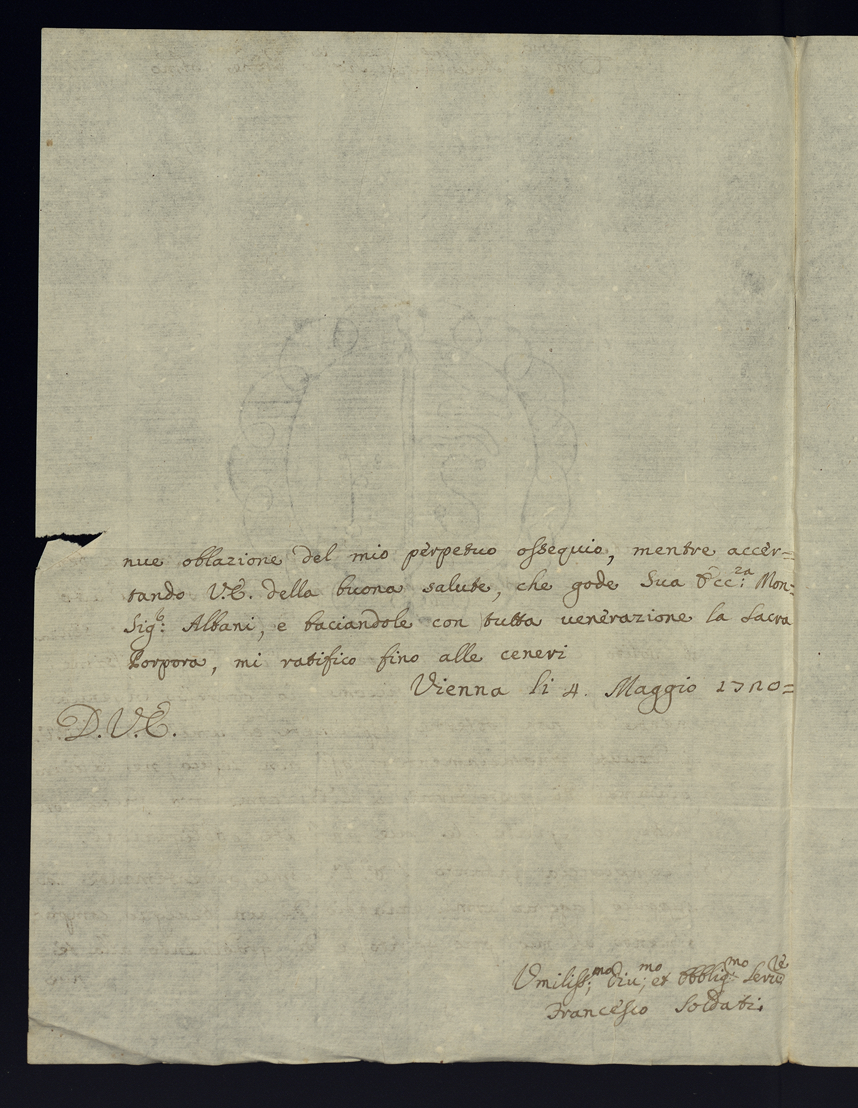 nue oblazione del mio perpetuo ossequio, mentre accer=
tando V.E. della buona salute, che gode Sua Ecc:za Mon:
Sigr: Albani, e baciandole con tutta venerazione la Sacra
Porpora, mi ratifico fino alle ceneri
Vienna li 4. Maggio 1720=
D.V.E.
Umiliss:mo Div:mo et Obblig:mo Servre
Francesco Soldati